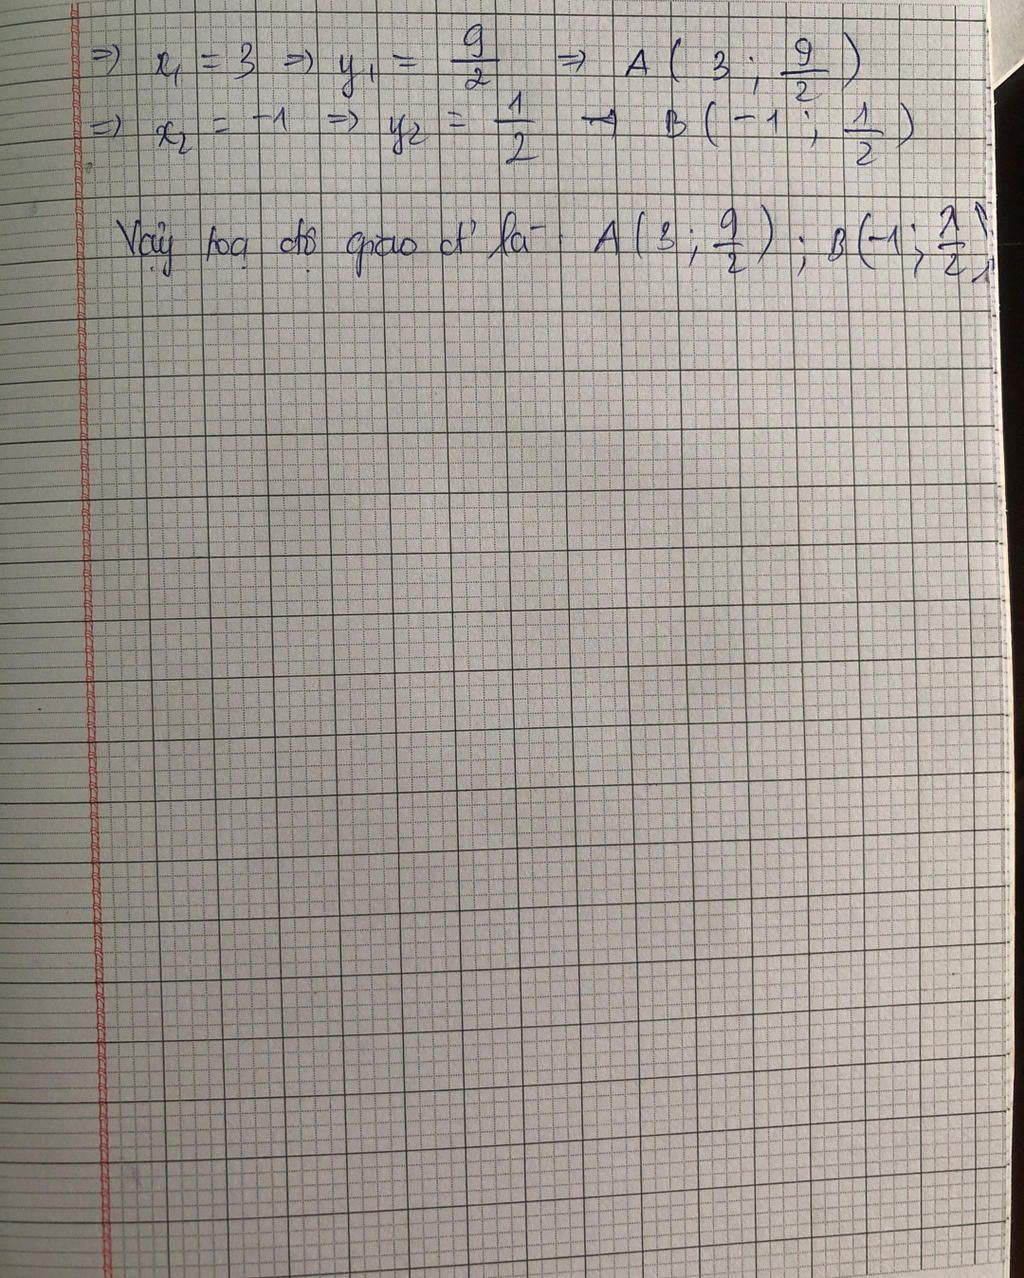 ⇒ x₁ = 3 ⇒ y₁ = 9/2 ⇒ A ( 3 ; 9/2 )
⇒ x₂ = -1 ⇒ y₂ = 1/2 → B ( -1 ; 1/2 )
Vậy toạ độ giao đ' là: A ( 3 ; 9/2 ) ; B ( -1 ; 1/2 )